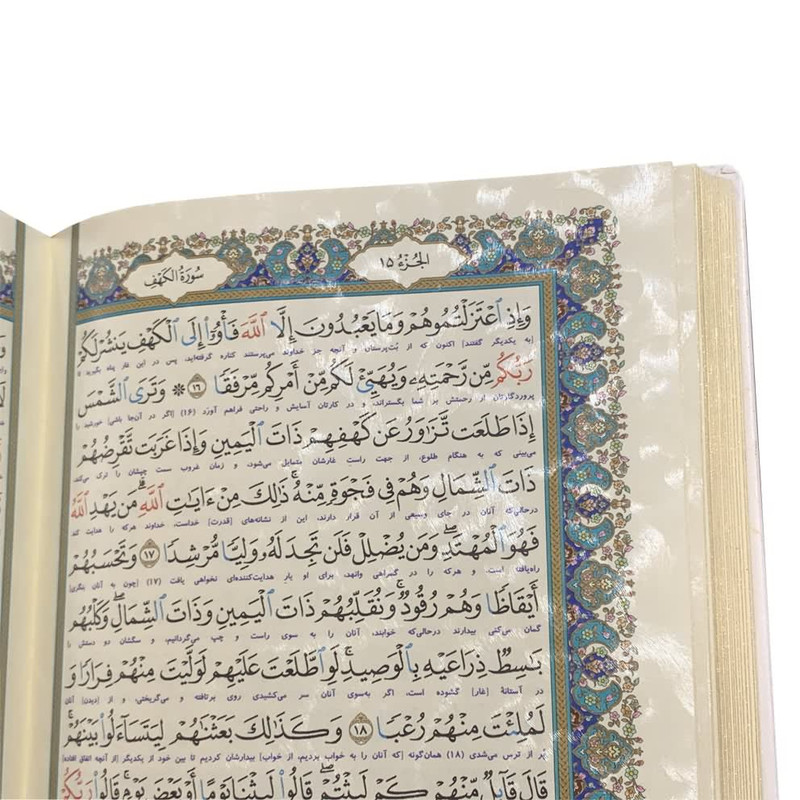 الجزء ١٥
سورة الكهف
وَإِذِ ٱعْتَزَلْتُمُوهُمْ وَمَا يَعْبُدُونَ إِلَّا ٱللَّهَ فَأْوُۥٓا۟ إِلَى ٱلْكَهْفِ يَنشُرْ لَكُمْ
[به یکدیگر گفتند] اکنون که از بت‌پرستان و آنچه جز خداوند می‌پرستند کناره گرفته‌اید، پس در این غار پناه بگیرید تا
رَبُّكُم مِّن رَّحْمَتِهِۦ وَيُهَيِّئْ لَكُم مِّنْ أَمْرِكُم مِّرْفَقًا ١٦ ۞ وَتَرَى ٱلشَّمْسَ
پروردگارتان از رحمتش بر شما بگستراند، و در کارتان آسایش و راحتی فراهم آورد (۱۶) [اگر در آن‌جا باشی] خورشید را
إِذَا طَلَعَت تَّزَٰوَرُ عَن كَهْفِهِمْ ذَاتَ ٱلْيَمِينِ وَإِذَا غَرَبَت تَّقْرِضُهُمْ
می‌بینی که به هنگام طلوع، از جهت راست غارشان متمایل می‌شود، و زمان غروب سمت چپشان را ترک می‌کند
ذَاتَ ٱلشِّمَالِ وَهُمْ فِى فَجْوَةٍ مِّنْهُ ۚ ذَٰلِكَ مِنْ ءَايَٰتِ ٱللَّهِ ۗ مَن يَهْدِ ٱللَّهُ
درحالی‌که آنان در جای وسیعی از آن قرار دارند، این از نشانه‌های [قدرت] خداست، خداوند هرکه را هدایت کند
فَهُوَ ٱلْمُهْتَدِ ۖ وَمَن يُضْلِلْ فَلَن تَجِدَ لَهُۥ وَلِيًّا مُّرْشِدًا ١٧ وَتَحْسَبُهُمْ
راه‌یافته است، و هرکه را در گمراهی وانهد، برای او یار هدایت‌کننده‌ای نخواهی یافت (۱۷) [چون به آنان بنگری]
أَيْقَاظًا وَهُمْ رُقُودٌ ۚ وَنُقَلِّبُهُمْ ذَاتَ ٱلْيَمِينِ وَذَاتَ ٱلشِّمَالِ ۖ وَكَلْبُهُم
گمان می‌کنی بیدارند درحالی‌که خوابند، آنان را به سوی راست و چپ می‌گردانیم، و سگشان دو دستش را
بَٰسِطٌ ذِرَاعَيْهِ بِٱلْوَصِيدِ ۚ لَوِ ٱطَّلَعْتَ عَلَيْهِمْ لَوَلَّيْتَ مِنْهُمْ فِرَارًا وَ
در آستانهٔ [غار] گشوده است، اگر به‌سوی آنان سر می‌کشیدی روی برتافته و می‌گریختی، و از [دیدن] آنان
لَمُلِئْتَ مِنْهُمْ رُعْبًا ١٨ وَكَذَٰلِكَ بَعَثْنَٰهُمْ لِيَتَسَآءَلُوا۟ بَيْنَهُمْ ۚ
پر از ترس می‌شدی (۱۸) همان‌گونه [که آنان را به خواب بردیم، از خواب] بیدارشان کردیم تا بین خود از یکدیگر [از آنچه اتفاق افتاده]
قَالَ قَآئِلٌ مِّنْهُمْ كَمْ لَبِثْتُمْ ۖ قَالُوا۟ لَبِثْنَا يَوْمًا أَوْ بَعْضَ يَوْمٍ ۚ قَالُوا۟ رَبُّكُمْ